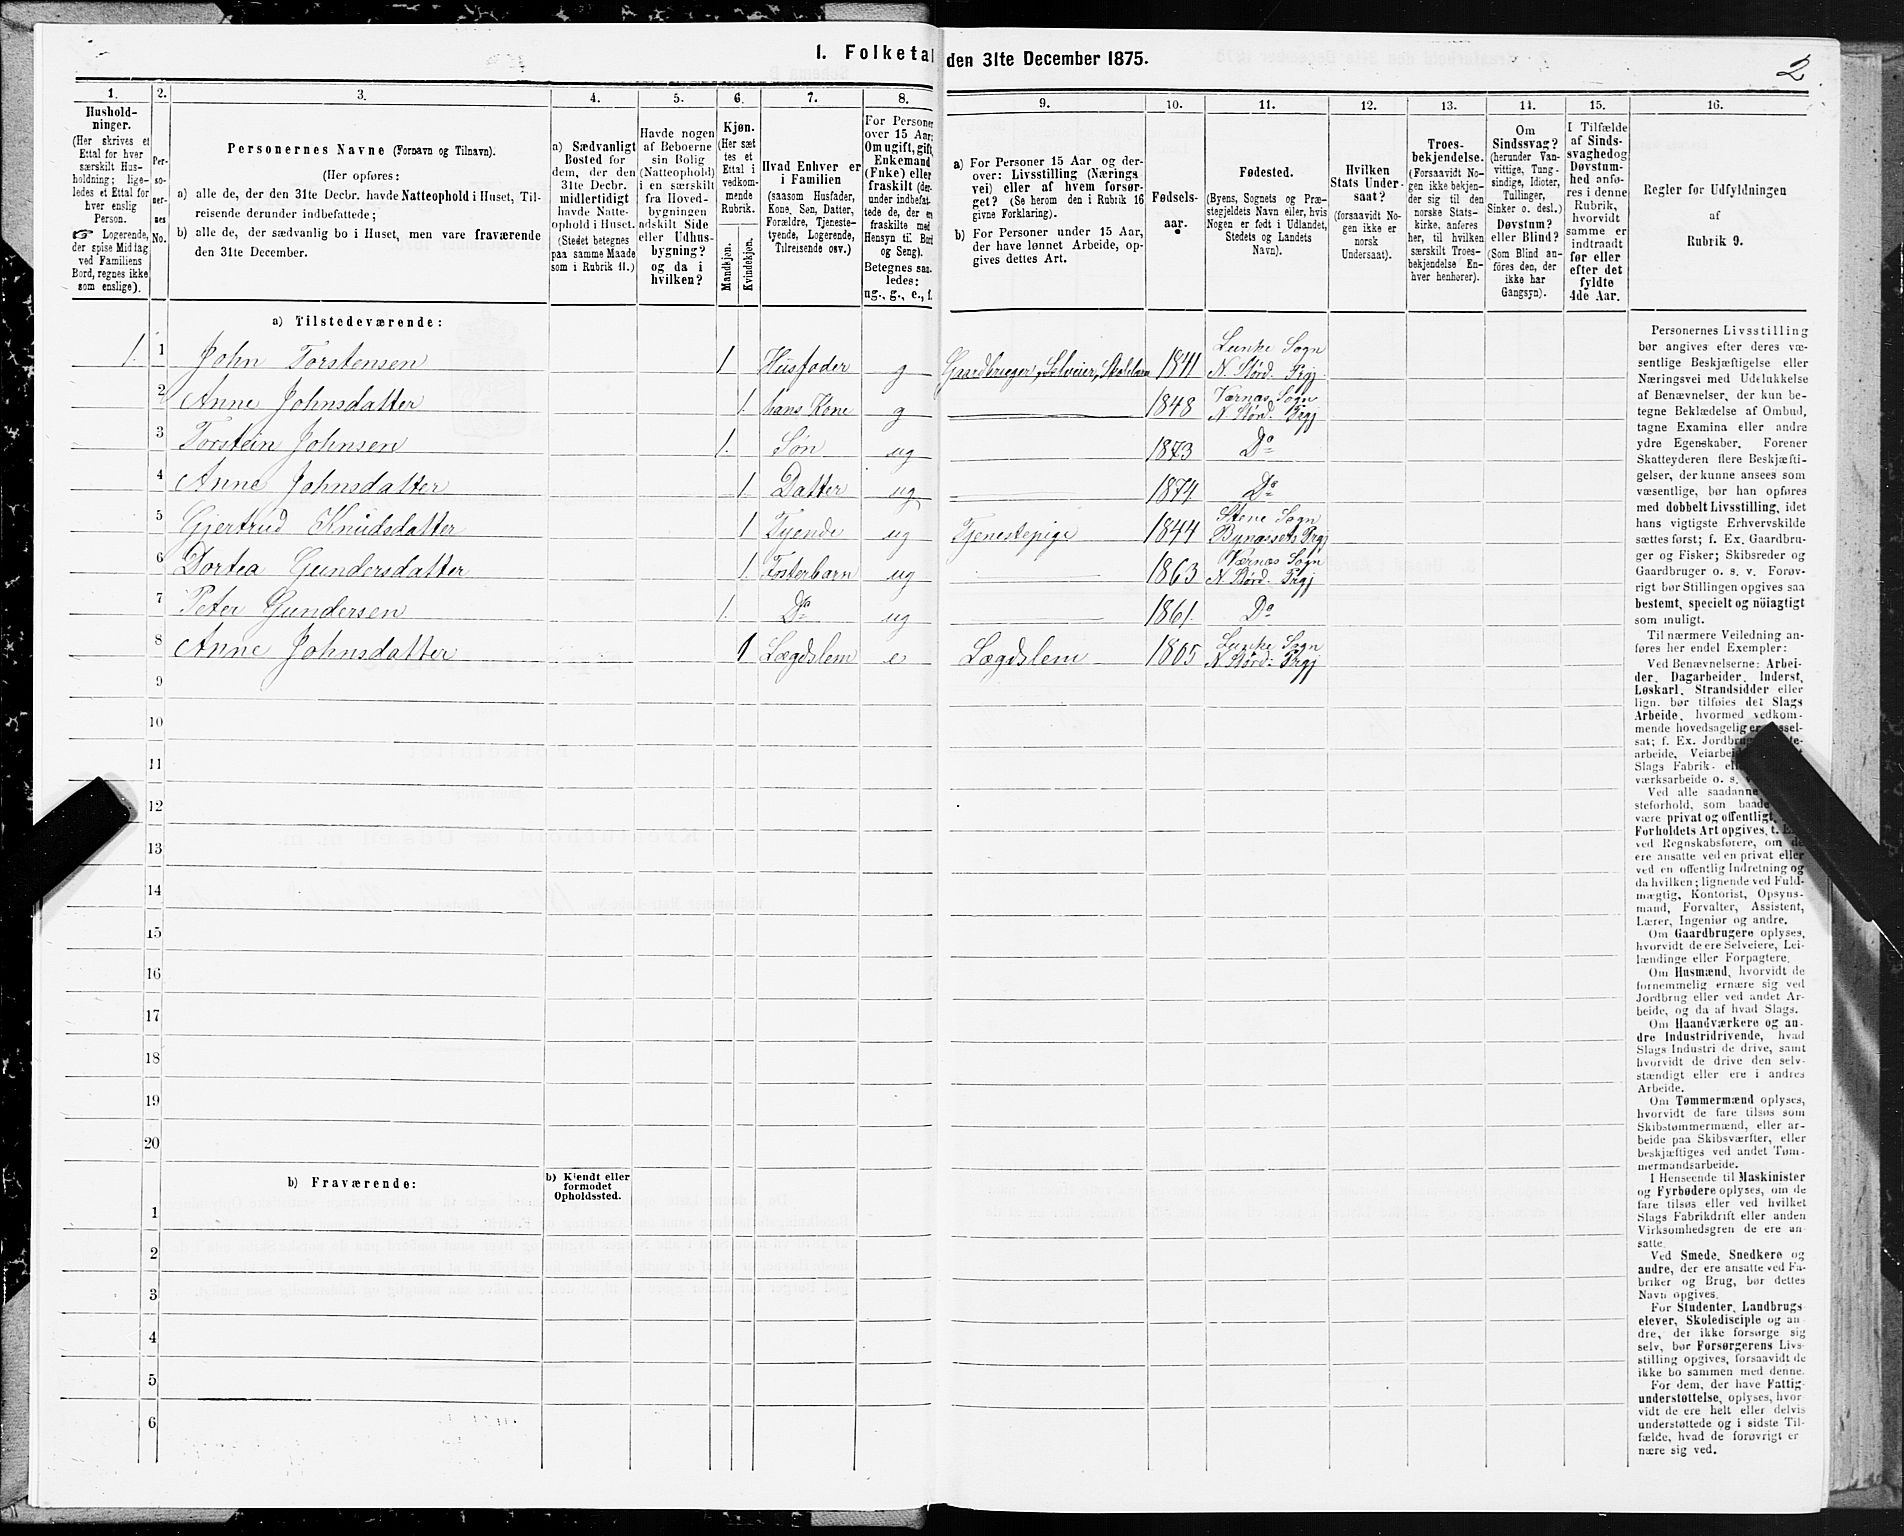 I. Folketal den 31te December 1875.
2
1.
Hushold-
ninger.
(Her skrives et
Ettal for hver
særskilt Hus-
holdning; lige-
ledes et Ettal for
hver enslig
Person.
☞ Logerende,
der spise Middag
ved Familiens
Bord, regnes ikke
som enslige).
2.
Per-
so-
ner-
nes
No.
3.
Personernes Navne (Fornavn og Tilnavn).
(Her opføres:
a) alle de, der den 31te Decbr. havde Natteophold i Huset, Til-
reisende derunder indbefattede;
b) alle de, der sædvanlig bo i Huset, men vare fraværende
den 31te December.
4.
a) Sædvanligt
Bosted for
dem, der den
31te Decbr.
midlertidigt
havde Natte-
ophold i Huset.
(Stedet betegnes
paa samme Maade
som i Rubrik 11.)
5.
Havde nogen
af Beboerne
sin Bolig
(Natteophold)
i en særskilt
fra Hoved-
bygningen
adskilt Side
eller Udhus-
bygning?
og da i
hvilken?
6.
Kjøn.
(Her sæt
tes et
Ettal i
vedkom-
mende
Rubrik.
Mandkjøn.
Kvindekjøn.
7.
Hvad Enhver er
i Familien
(saasom Husfader,
Kone, Søn, Datter,
Forældre, Tjeneste-
tyende, Logerende,
Tilreisende osv.)
8.
For Personer
over 15 Aar:
Om ugift, gift,
Enkemand
(Enke) eller
fraskilt (der-
under indbefat-
tede de, der er
fraskilte med
Hensyn til Bord
og Seng).
Betegnes saa-
ledes:
ug., g., e., f.
9.
a) For Personer 15 Aar og der-
over: Livsstilling (Nærings
vei) eller af hvem forsør-
get? (Se herom den i Rubrik 16
givne Forklaring).
b) For Personer under 15 Aar,
der have lønnet Arbeide, op-
gives dettes Art.
10.
Fødsels-
aar.
11.
Fødested.
(Byens, Sognets og Præ-
stegjeldets Navn eller, hvis
Nogen er født i Udlandet,
Stedets og Landets
Navn).
12.
Hvilken
Stats Under-
saat?
(forsaavidt No-
gen ikke er
norsk
Undersaat).
13.
Troes-
bekjendelse.
(Forsaavidt No-
gen ikke bekjen-
der sig til den
norske Stats-
kirke, anføres
her, til hvilken
særskilt Troes-
bekjendelse En-
hver henhører).
14.
Om
Sindssvag?
(herunder Van-
vittige, Tung-
sindige, Idioter,
Tullinger,
Sinker o. desl.)
Døvstum?
eller Blind?
(Som Blind an-
føres den, der
ikke har
Gangsyn).
15.
I Tilfælde
af Sinds-
svaghed og
Døvstum-
hed anfø-
res i denne
Rubrik,
hvorvidt
samme er
indtraadt
før eller
efter det
fyldte
4de Aar.
16.
Regler for Udfyldningen
af
Rubrik 9.
a) Tilstedeværende:
1. 1 John Torstensen 1 Husfader g Gaardbruger, Selveier, 1841 Lunke Sogn
N. Størd. Prgj.
2 Anne Johnsdatter 1. hans Kone g 1848 Værnæs Sogn
N. Størd. Prgj
3 Torstein Johnsen 1. Søn ug 1873 Do
4 Anne Johnsdatter 1. Datter ug 1874 Do
5 Gjertrud Knudsdatter 1 Tyende ug Tjenestepige 1844 Stene Sogn
Bynæssets Prgj
6 Dortea Gundersdatter 1. Fosterbarn ug 1863 Værnæs Sogn
N. Størd. Prgj
7 Peter Gundersen 1. Do ug 1861. Do
8 Anne Johnsdatter 1 Lægdslem e Lægdslem 1805 Lunke Sogn
N. Størd. Prgj
9
10
11
12
13
14
15
16
17
18
19
20
b) Fraværende:
b) Kjendt eller
formodet
Opholdssted.
1
2
3
4
5
6
Personernes Livsstilling
bør angives efter deres væ-
sentlige Beskjæftigelse eller
Næringsvei med Udelukkelse
af Benævnelser, der kun be-
tegne Beklædelse af Ombud,
tagne Examina eller andre
ydre Egenskaber. Forener
Skatteyderen flere Beskjæfti-
gelser, der kunne ansees som
væsentlige, bør han opføres
med dobbelt Livsstilling, idet
hans vigtigste Erhvervskilde
sættes først; f. Ex. Gaardbru-
ger og Fisker; Skibsreder og
Gaardbruger o. s. v. Forøv-
rigt bør Stillingen opgives saa
bestemt, specielt og nøiagtigt
som muligt.
Til nærmere Veiledning an-
føres her endel Exempler:
Ved Benævnelserne: Arbei-
der, Dagarbeider, Inderst,
Løskarl, Strandsidder eller
lign. bør tilføies det Slags
Arbeide, hvormed vedkom-
mende hovedsagelig er
sat; f. Ex. Jordbrug
arbeide,
Slags Fabrik-
værksarbeide o. s.
Ved alle saadanne
steforhold, som baade
være privat og offentligt,
Forholdets Art opgives, t. Ex.
ved Regnskabsførere, om de
ere ansatte ved en privat eller
ved en offentlig Indretning og
da hvilken; lignende ved Fuld-
mægtig, Kontorist, Opsyns-
mand, Forvalter, Assistent,
Lærer, Ingeniør og andre.
Om Gaardbrugere oplyses,
hvorvidt de ere Selveiere, Lei-
lændinge eller Forpagtere.
Om Husmænd, hvorvidt de
fornemmelig ernære sig ved
Jordbrug eller ved andet Ar-
beide, og da af hvad Slags.
Om Haandværkere og an-
dre Industridrivende, hvad
Slags Industri de drive, samt
hvorvidt de drive den selv-
stændigt eller ere i andres
Arbeide.
Om Tømmermænd oplyses,
hvorvidt de fare tilsøs som
Skibstømmermænd, eller ar-
beide paa Skibsværfter, eller
beskjæftiges ved andet Tøm-
mermandsarbeide.
I Henseende til Maskinister
og Fyrbødere oplyses, om de
fare tilsøs eller ved hvilket
Slags Fabrikdrift eller anden
Virksomhedsgren de ere an-
satte.
Ved Smede, Snedkere og
andre, der ere ansatte ved Fa-
briker og Brug, bør dettes
Navn opgives.
For Studenter, Landbrugs
elever, Skoledisciple og an-
dre, der ikke forsørge sig
selv, bør Forsørgerens Livs-
stilling opgives, forsaavidt de
ikke bo sammen med denne.
For dem, der have Fattig-
understøttelse, oplyses, hvor-
vidt de ere helt eller delvis
understøttede og i sidste Til-
fælde, hvad de forøvrigt er-
nære sig ved.